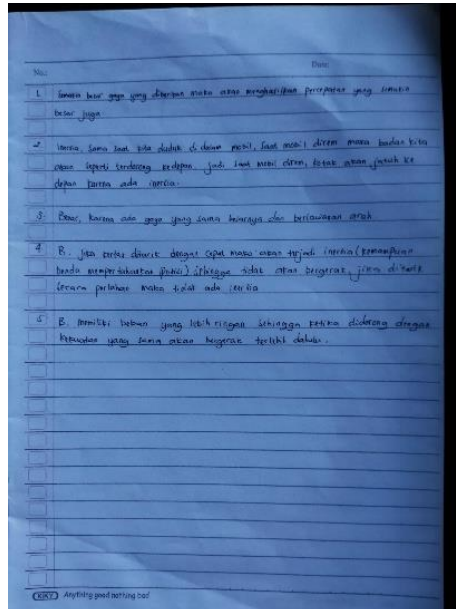 No.: Date:
1. Semakin besar gaya yang diberikan maka akan menghasilkan percepatan yang semakin
besar juga
2. Inersia, sama saat kita duduk di dalam mobil, saat mobil direm maka badan kita
akan seperti terdorong kedepan. Jadi saat mobil direm, kotak akan jatuh ke
depan karena ada inersia.
3. Benar, karena ada gaya yang sama besarnya dan berlawanan arah.
4 B. Jika kertas ditarik dengan cepat maka akan terjadi inersia (kemampuan
benda mempertahankan posisi) sehingga tidak akan bergerak, jika ditarik
secara perlahan maka tidak ada inersia
5 B. Memiliki beban yang lebih ringan sehingga ketika didorong dengan
kekuatan yang sama akan bergerak terlebih dahulu.
KIKY Anything good nothing bad